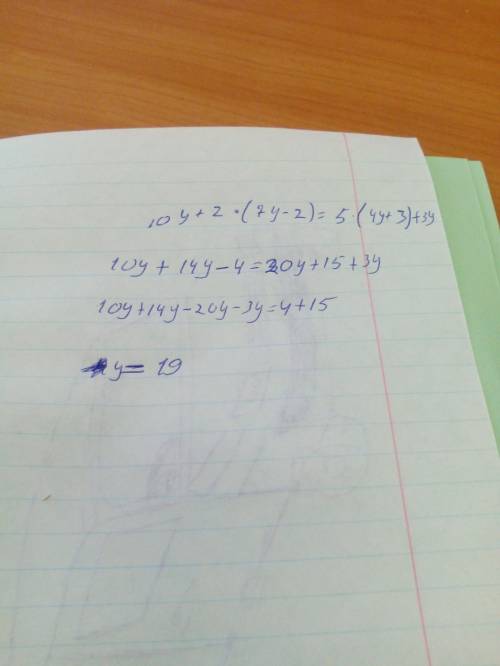 10y+2·(7y-2)=5·(4y+3)+3y
10y+14y-4=20y+15+3y
10y+14y-20y-3y=4+15
y=19